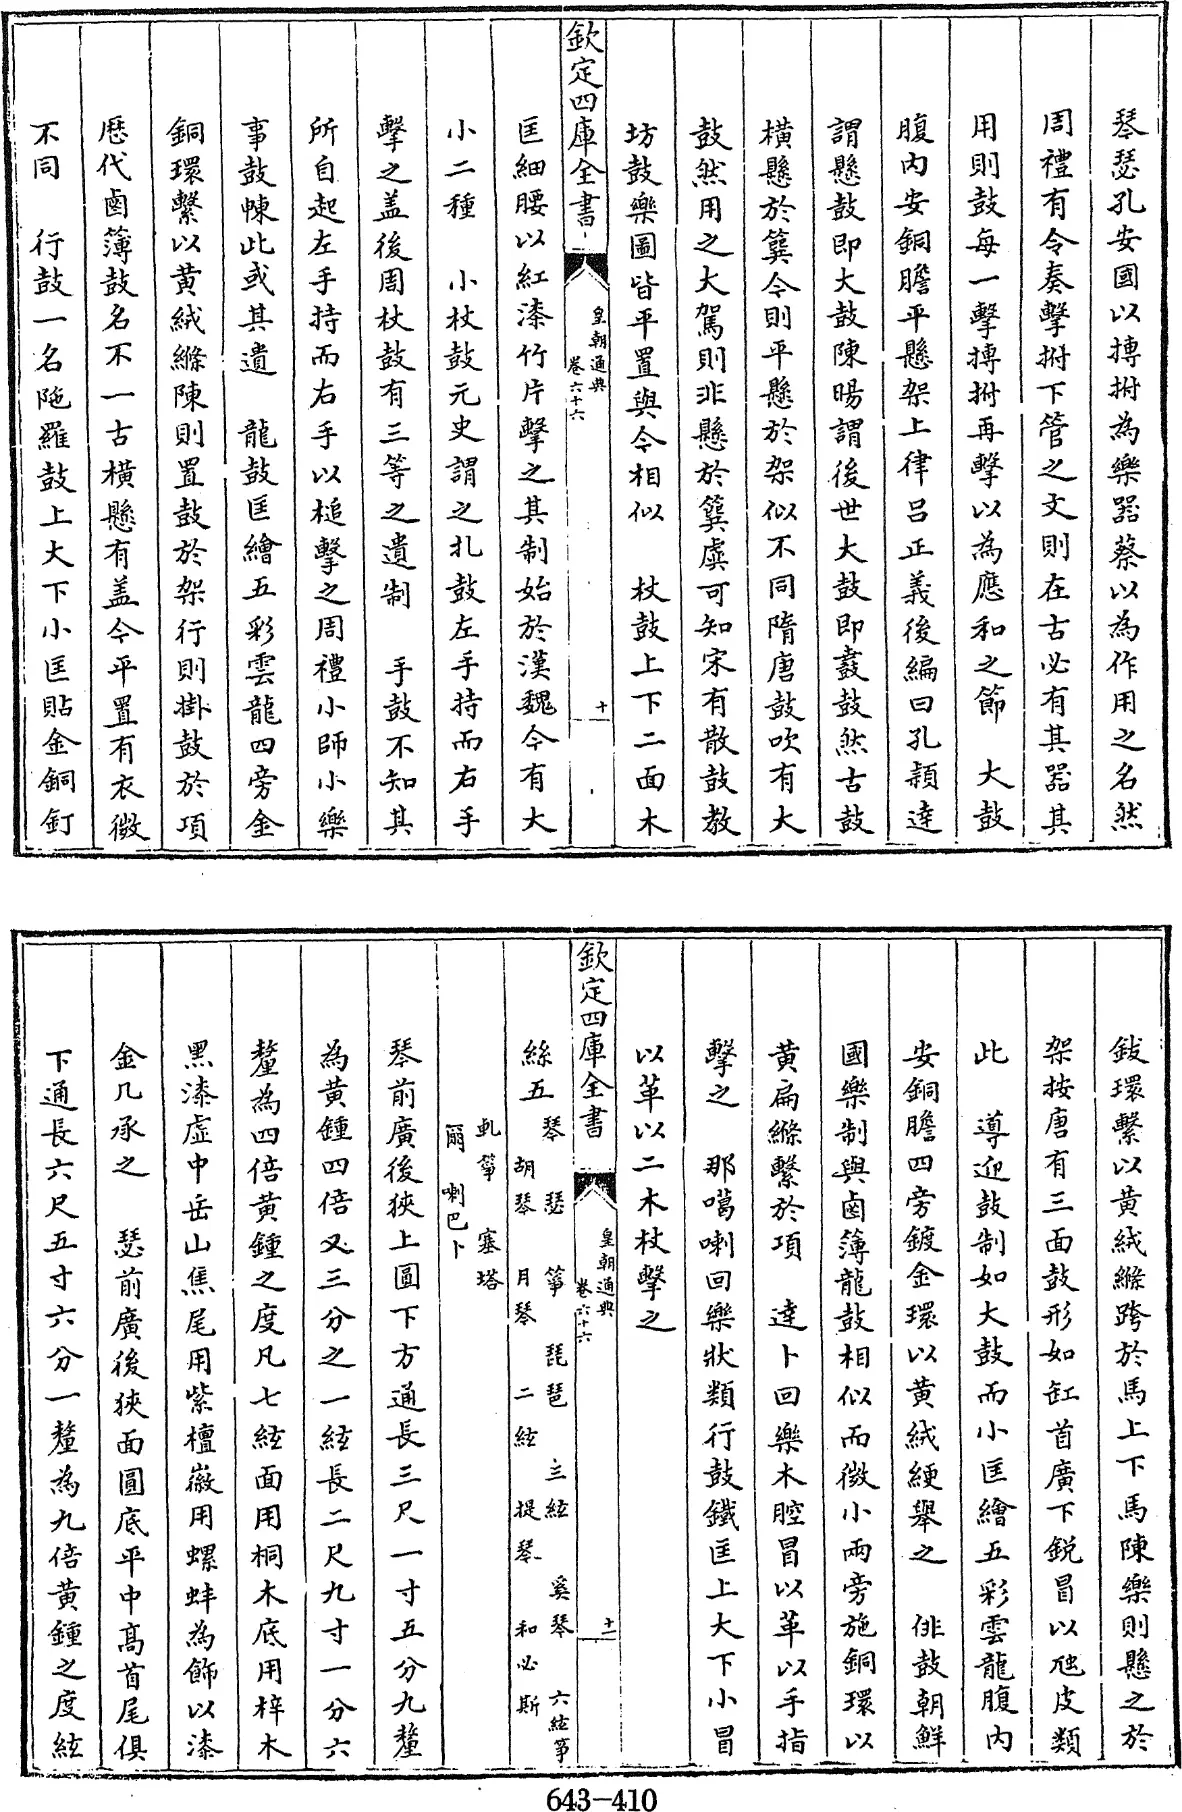 琴瑟孔安國以搏拊為樂器蔡以為作用之名然
周禮有令奏擊拊下管之文則在古必有其器其
用則鼓每一擊搏拊再擊以為應和之節　大鼓
腹内安銅膽平懸架上律呂正義後編曰孔穎達
謂懸鼓即大鼓陳暘謂後世大鼓即鼖鼓然古鼓
横懸於簨今則平懸於架似不同隋唐鼓吹有大
鼓然用之大駕則非懸於簨虡可知宋有散鼓教
坊鼓樂圖皆平置與今相似　杖鼓上下二面木
欽定四庫全書
皇朝通典
卷六十六
十
匡細腰以紅漆竹片擊之其制始於漢魏今有大
小二種　小杖鼓元史謂之扎鼓左手持而右手
擊之盖後周杖鼓有三等之遺制　手鼓不知其
所自起左手持而右手以槌擊之周禮小師小樂
事鼓朄此或其遺　龍鼓匡繪五彩雲龍四旁金
銅環繫以黄絨縧陳則置鼓於架行則掛鼓於項
歴代鹵簿鼓名不一古横懸有盖今平置有衣微
不同　行鼓一名陁羅鼓上大下小匡貼金銅釘
鈸環繫以黄絨縧跨於馬上下馬陳樂則懸之於
架按唐有三面鼓形如缸首廣下鋭冒以虺皮類
此　導迎鼓制如大鼓而小匡繪五彩雲龍腹内
安銅膽四旁鍍金環以黄絨綆舉之　俳鼓朝鮮
國樂制與鹵簿龍鼓相似而微小兩旁施銅環以
黄扁縧繫於項　達卜回樂木腔冒以革以手指
擊之　那噶喇回樂狀類行鼓鐵匡上大下小冒
以革以二木杖擊之
欽定四庫全書
皇朝通典
卷六十六
十一
絲五　琴　瑟　箏　琵琶　三絃　奚琴　六絃箏
胡琴　月琴　二絃　提琴　和必斯
軋箏　塞塔
爾　喇巴卜
琴前廣後狹上圓下方通長三尺一寸五分九釐
為黄鍾四倍又三分之一絃長二尺九寸一分六
釐為四倍黄鍾之度凡七絃面用桐木底用梓木
黑漆虚中岳山焦尾用紫檀徽用螺蚌為飾以漆
金几承之　瑟前廣後狹面圓底平中髙首尾俱
下通長六尺五寸六分一釐為九倍黄鍾之度絃
643-410